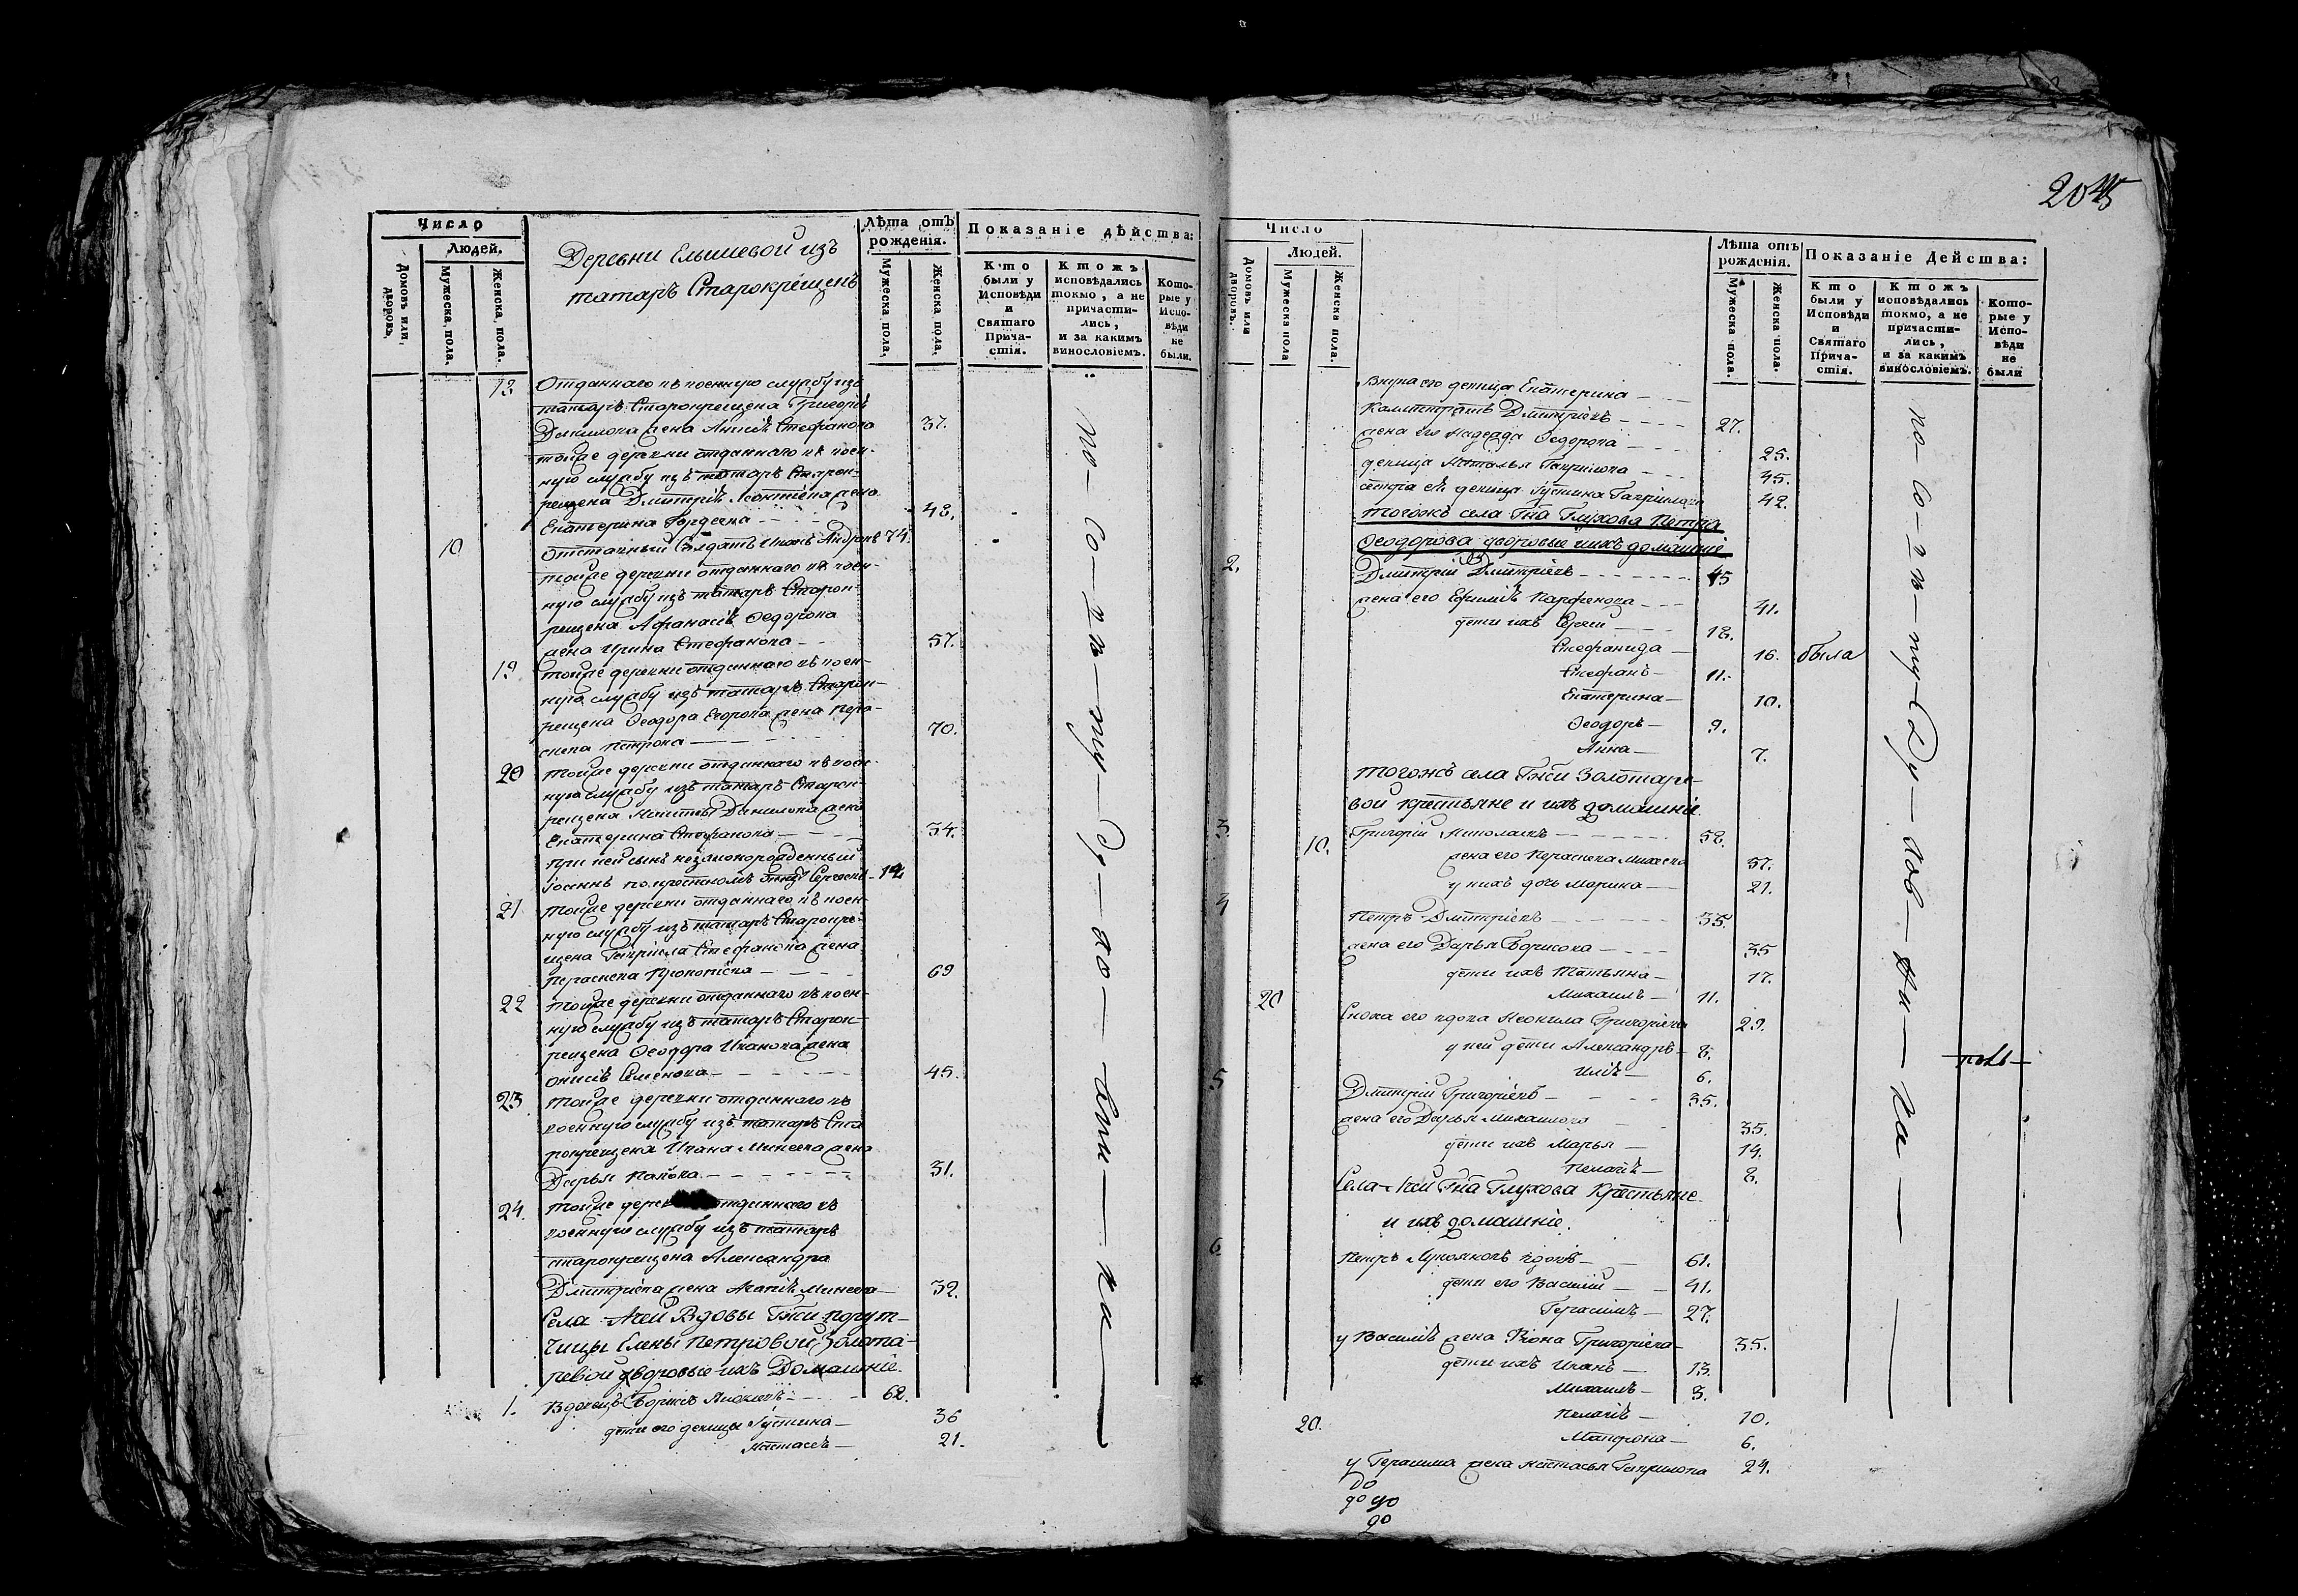 2045
Число
Людей.
Домовъ или, дворовъ.
Мужеска, пола,
Женска, пола.
Деревни Елышевой изъ
татаръ Старокрещенъ
Лѣта отъ рожденія.
Мужеска пола,
Женска, пола,
Показаніе дѣйства:
Кто были у Исповѣди и Святаго Причастія.
Ктожъ исповѣдались токмо, а не причастились, и за какимъ винословіемъ.
Которые у Исповѣди не были.
Отданнаго въ военную службу изъ
татаръ Старокрещена Григорія
Данилова жена Анисія Стефанова 37.
тойже деревни отданнаго въ воен-
ную службу изъ татаръ Старок-
рещена Дмитрія Леонтіева жена
Екатерина Гордеева 48.
10 Отставный Солдатъ Иванъ 74.
тойже деревни отданнаго въ воен-
ную службу изъ татаръ Старок-
рещена Афанасія Ѳедорова
жена Ирина Стефанова 57.
19 тойже деревни отданнаго въ воен-
ную службу изъ татаръ Старок-
рещена Ѳеодора Егорова жена Пара-
скева Петрова 70.
20 тойже деревни отданнаго въ воен-
ную службу изъ татаръ Старок-
рещена Данилова жена
Екатерина Стефанова 34.
при ней сынъ незаконорожденный
Іоаннъ по крестномъ отцу Сергеевъ 14
21 тойже деревни отданнаго въ воен-
ную службу изъ татаръ Старокре-
щена Гавріила Стефанова жена
Параскева Прокопіева 69
22 тойже деревни отданнаго въ воен-
ную службу изъ татаръ Старок-
рещена Ѳеодора Иванова жена
Онисія Семенова 45.
23 тойже деревни отданнаго въ
военную службу изъ татаръ Ста
рокрещена Ивана Минеева жена
Дарья 31.
24. тойже отданнаго въ
военную службу изъ татаръ
старокрещена Александра
Дмитріева жена Агапія Минеева 32.
Села Вдовы Гжи порут-
чицы Елены Петровой Золота-
ревой дворовые ихъ Домашніе.
1. Вдовецъ Борисъ 62.
дети его девицы Іустина 36
21.
по-со-гла-су-до-кли-ка
Число
Людей.
Домовъ или дворовъ.
Мужеска пола
Женска пола.
Лѣта отъ рожденія.
Мужеска пола.
Женска пола.
Показаніе Дейсгва:
Кто были у Исповѣди и Святаго Причастія.
Ктожъ исповѣдались токмо, а не причастились, и за какимъ винословіемъ.
Которые у Исповѣди не были
Внука его девица Екатерина
Дмитріевъ 27.
жена его Надежда Ѳедорова 25.
девица Наталья Гаврилова 45.
сестра ея девица Іустина Гаврилова 42.
тогожъ села Гна Глухова Петра
Ѳеодорова дворовые ихъ домашніе
2. Дмитрій Дмитріевъ 45
жена его Ефимія Парфенова 41.
дети ихъ Сергей 18.
Стефанида 16. была
Стефанъ 11.
Екатерина 10.
Ѳеодоръ 9.
Анна 7.
тогожъ села Гжи Золотаре-
вой крестьяне и ихъ домашніе.
3. 10. Григорій Николаевъ 58.
жена его Параскева 57.
у нихъ дочь Марина 21.
4 Петръ Дмитріевъ 35.
жена его Дарья Борисова 35
дети ихъ Татьяна 17.
20 Михаилъ 11.
Сноха его вдова Неонила Григоріева 29.
у ней дети Александръ 8.
Илія 6.
5 Дмитрій Григоріевъ 35.
жена его Дарья Михаилова 35.
дети ихъ Марья 14.
Пелагія 8.
Села Гна Глухова Крестьяне
и ихъ домашніе.
6 Петръ вдовъ 61.
дети его Василій 41.
Герасимъ 27.
у Василія жена Григоріева 35.
дети ихъ Иванъ 13.
Михаилъ 3.
20. Пелагія 10.
Матрона 6.
у Герасима жена Настасья Гаврилова 24.
до
до до
до